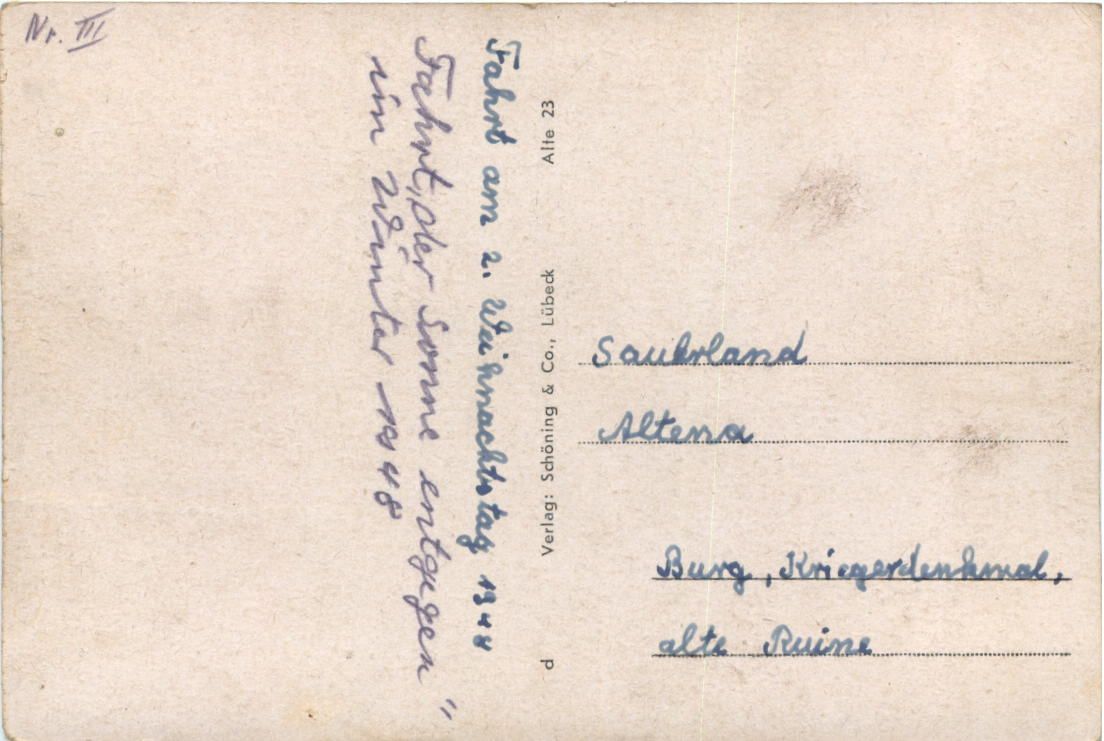 Nr. III
Fahrt am 2. Weihnachtstag 1944
Fahrt „der Sonne entgegen"
im Winter 1948
Verlag: Schöning & Co., Lübeck Alte 23
d
Sauerland
Altena
Burg, Kriegerdenkmal,
alte Ruine